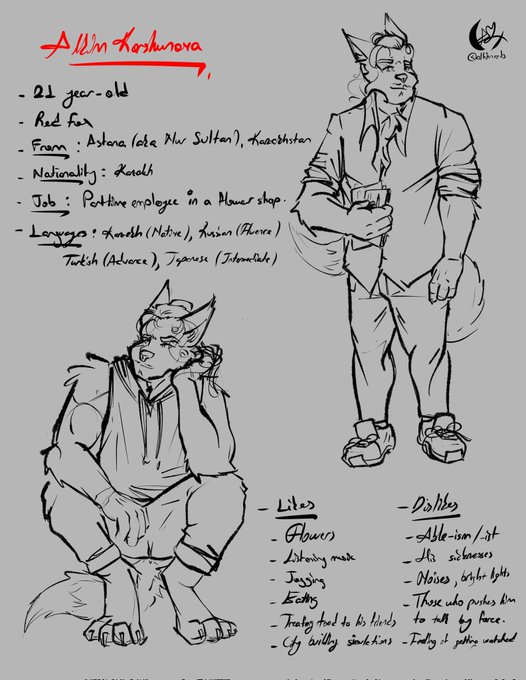 - 21 year-old
- Red Fox
- From : Astana (aka Nur Sultan), Kazakhstan
- Nationality : Kazakh
- Job : Parttime employee in a flower shop.
- Languages : Kazakh (Native), Russian (Fluence)
Turkish (Advance), Japanese (Intermediate)
- Likes
- Flowers
- Listening music
- Jogging
- Eating
- Treating food to his friends
- City building simulations
- Dislikes
- Able-ism/-ist
- His sicknesses
- Noises, bright lights
- Those who pushes him
to talk by force.
- Feeling of getting watched